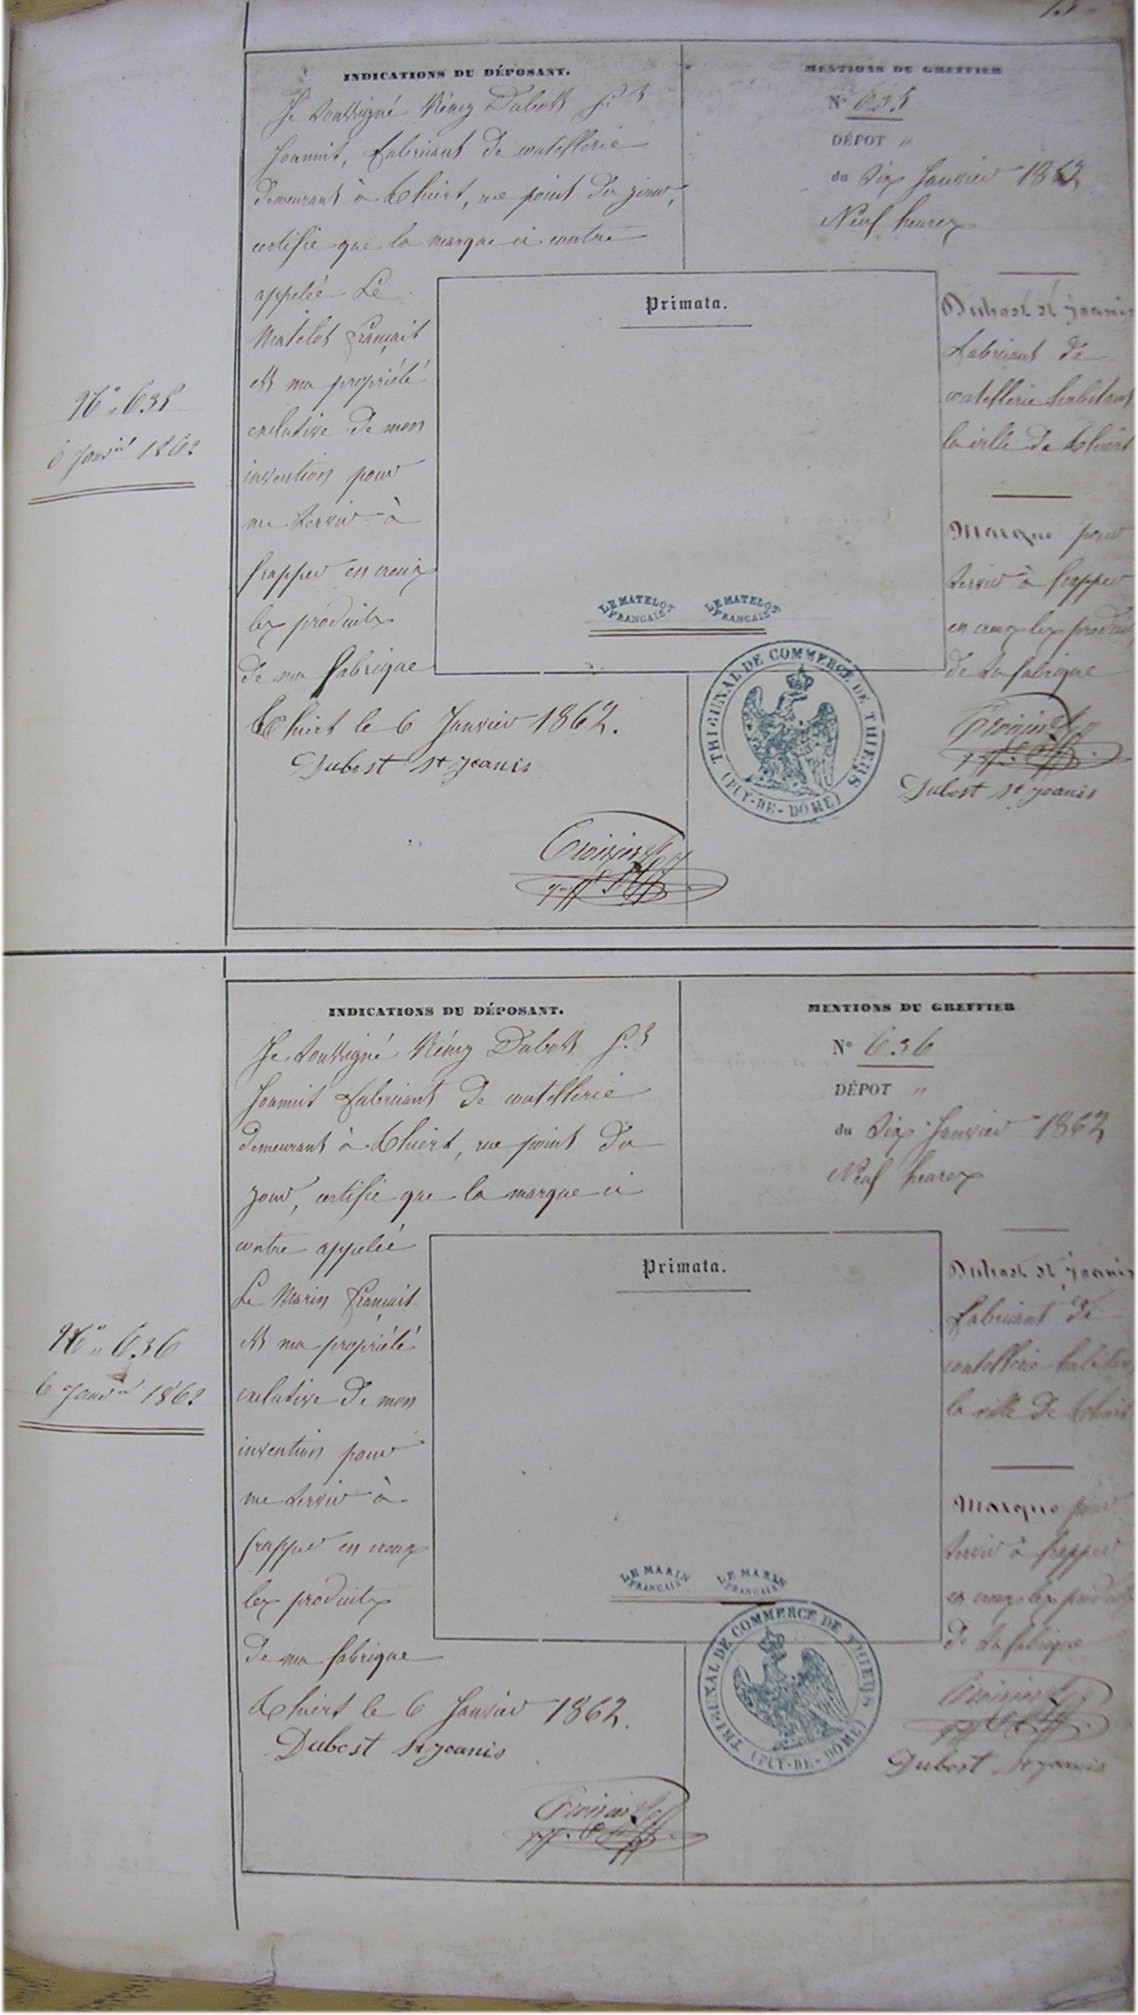 INDICATIONS DU DÉPOSANT.
Je soussigné Rémy Dubost St
Joannis, fabricant de coutellerie
demeurant à Thiers, rue point du jour,
certifie que la marque ci contre
appelée Le
Matelot français
est ma propriété
exclusive de mon
invention pour
me servir à
frapper en creux
les produits
de ma fabrique
Thiers le 6 Janvier 1862.
Dubost St Joanis
N° 635
6 Janvier 1862
MENTIONS DU GREFFIER
N° 635
DÉPOT "
du Six Janvier 1862
Neuf heures
Primata.
LE MATELOT
FRANCAIS
LE MATELOT
FRANCAIS
Dubost St Joanis
fabricant de
coutellerie habitant
la ville de Thiers
Marque pour
servir à frapper
en creux les produits
de sa fabrique
TRIBUNAL DE COMMERCE DE THIERS
(PUY-DE-DOME)
Dubost St Joanis
INDICATIONS DU DÉPOSANT.
Je soussigné Rémy Dubost St
Joannis fabricant de coutellerie
demeurant à Thiers, rue point du
jour, certifie que la marque ci
contre appelée
Le Marin français
est ma propriété
exclusive de mon
invention pour
me servir à
frapper en creux
les produits
de ma fabrique
Thiers le 6 Janvier 1862.
Dubost St Joanis
N° 636
6 Janvier 1862
MENTIONS DU GREFFIER
N° 636
DÉPOT "
du Six Janvier 1862
Neuf heures
Primata.
LE MARIN
FRANCAIS
LE MARIN
FRANCAIS
Dubost St Joanis
fabricant de
coutellerie habitant
la ville de Thiers
Marque pour
servir à frapper
en creux les produits
de sa fabrique
TRIBUNAL DE COMMERCE DE THIERS
(PUY-DE-DOME)
Dubost St Joanis